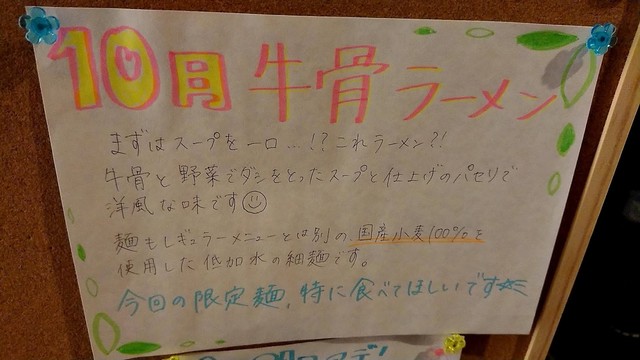 10月 牛骨ラーメン
まずはスープを一口…!?これラーメン?!
牛骨と野菜でダシをとったスープと仕上げのパセリで
洋風な味です☺
麺もレギュラーメニューとは別の、国産小麦100%を
使用した低加水の細麺です。
今回の限定麺、特に食べてほしいです☆